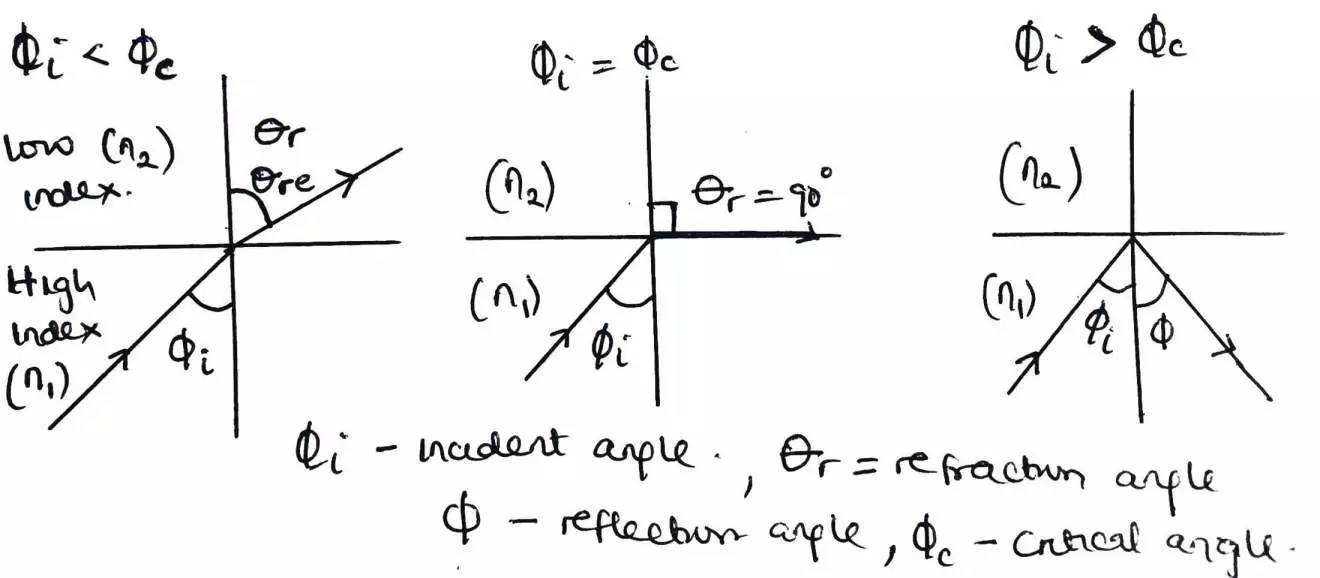 Φi < Φc
Low (n2)
index.
θr
θre
High
index
(n1)
Φi
Φi = Φc
(n2)
θr = 90°
(n1)
Φi
Φi > Φc
(n2)
(n1)
Φi
Φ
Φi - incident angle. , θr = refraction angle
Φ - reflection angle, Φc - critical angle.